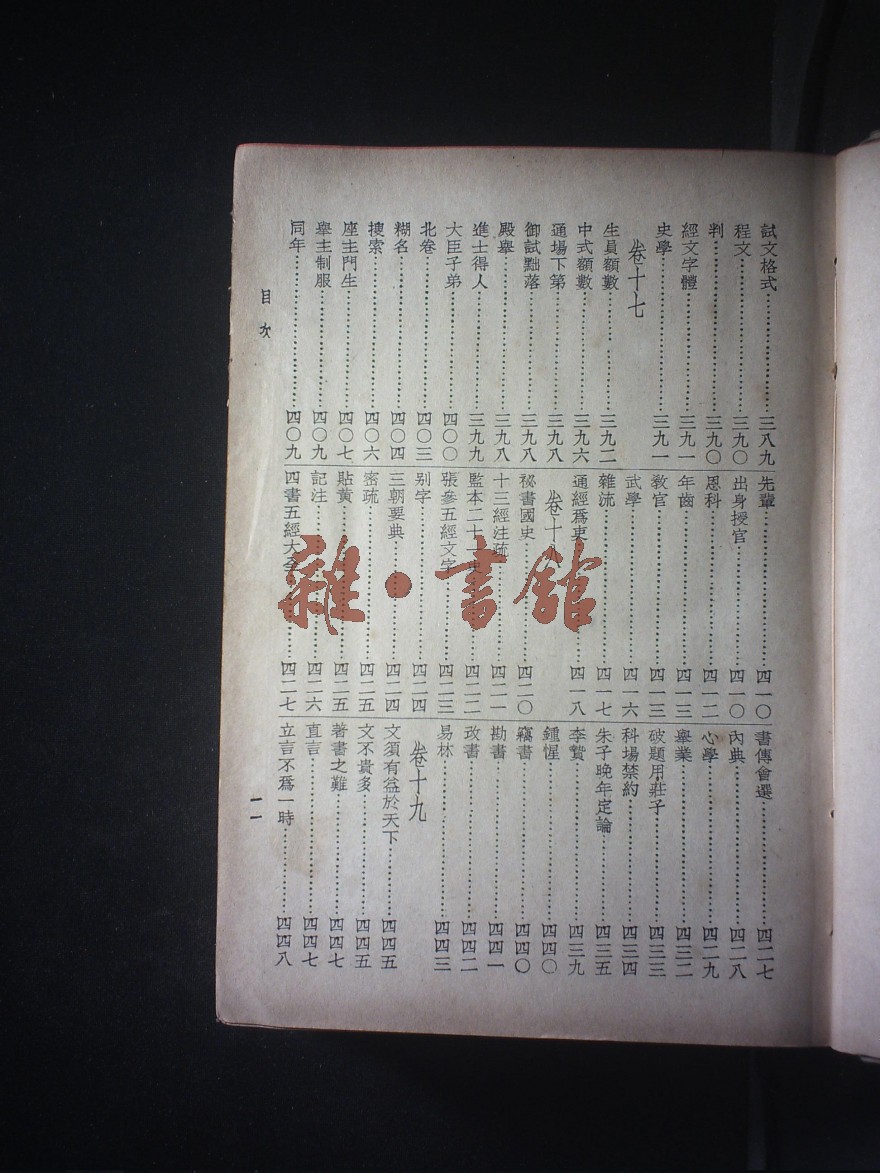 試文格式⋯⋯三八九
程文⋯⋯三九〇
判⋯⋯三九〇
經文字體⋯⋯三九一
史學⋯⋯三九一
卷十七
生員額數⋯⋯三九二
中式額數⋯⋯三九六
通場下第⋯⋯三九八
御試黜落⋯⋯三九八
殿舉⋯⋯三九八
進士得人⋯⋯三九九
大臣子弟⋯⋯四〇〇
北卷⋯⋯四〇三
糊名⋯⋯四〇四
搜索⋯⋯四〇六
座主門生⋯⋯四〇七
舉主制服⋯⋯四〇九
同年⋯⋯四〇九
先輩⋯⋯四一〇
出身授官⋯⋯四一〇
恩科⋯⋯四一二
年齒⋯⋯四一三
敎官⋯⋯四一三
武學⋯⋯四一六
雜流⋯⋯四一七
通經爲吏⋯⋯四一八
卷十八
祕書國史⋯⋯四二〇
十三經注疏⋯⋯四二一
監本二十一史⋯⋯四二二
張參五經文字⋯⋯四二三
別字⋯⋯四二四
三朝要典⋯⋯四二四
密疏⋯⋯四二五
貼黄⋯⋯四二五
記注⋯⋯四二六
四書五經大全⋯⋯四二七
書傳會選⋯⋯四二七
內典⋯⋯四二八
心學⋯⋯四二九
舉業⋯⋯四三二
破題用莊子⋯⋯四三三
科場禁約⋯⋯四三四
朱子晚年定論⋯⋯四三五
李贄⋯⋯四三九
鍾惺⋯⋯四四〇
竊書⋯⋯四四〇
勘書⋯⋯四四一
改書⋯⋯四四二
易林⋯⋯四四三
卷十九
文須有益於天下⋯⋯四四五
文不貴多⋯⋯四四五
著書之難⋯⋯四四七
直言⋯⋯四四七
立言不爲一時⋯⋯四四八
目次
一一
雜·書館